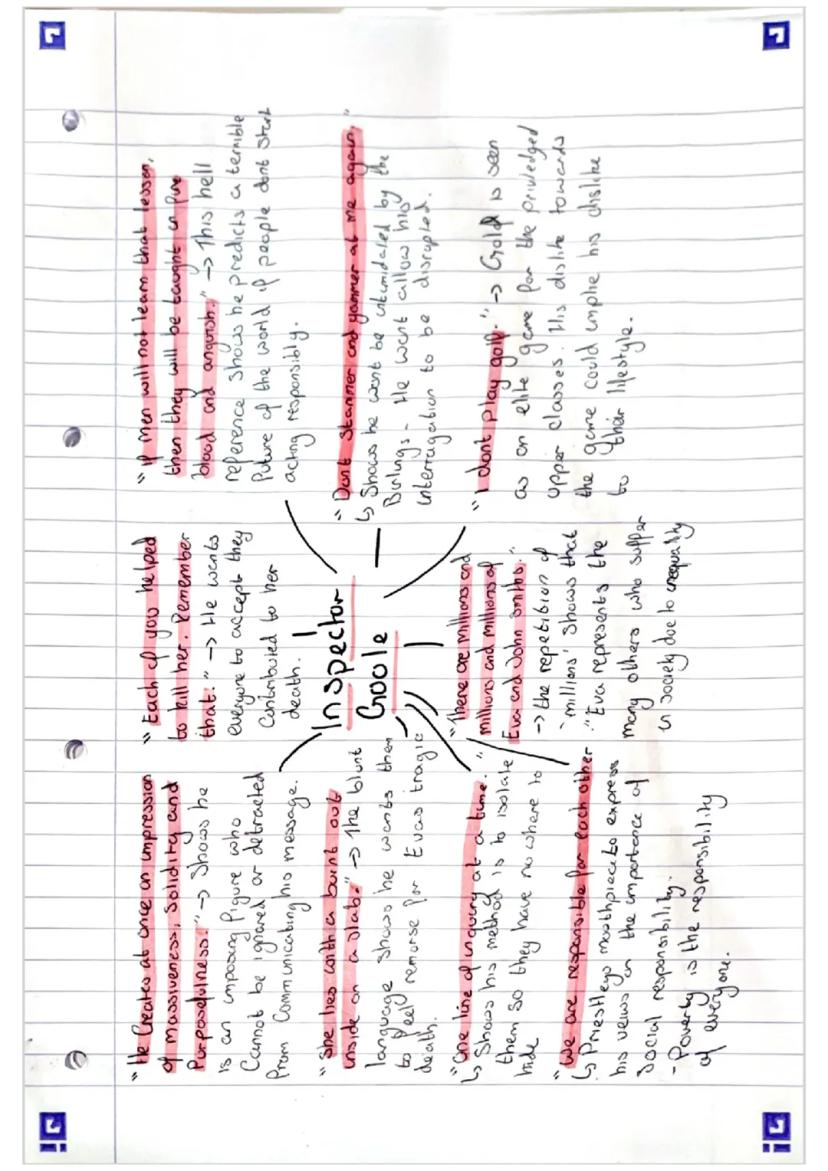 "He Creates at once an impression
of massiveness, Solidity and
Purposefulness." -> Shows he
is an imposing figure who
Cannot be ignored or detracted
from Communicating his message.
"She lies with a burnt out
inside on a slab." -> The blunt
language shows he wants them
to feel remorse for Evas tragic
death.
"One line of inquiry at a time."
↳ Shows his method is to isolate
them so they have no where to
hide
"We are responsible for each other
↳ Priestleys mouthpiece to express
his veiws on the importance of
Social responsibility.
- Poverty is the responsibility
of everyone.
"Each of you helped
to kill her. Remember
that." -> He wants
everyone to accept they
Contributed to her
death.
Inspector
Goole
"There are millions and
millions and millions of
Eva and John Smiths."
-> the repetition of
'millions' Shows that
"Eva represents the
many others who suffer
in society due to inequality
"If men will not learn that lesson,
then they will be taught in fire
blood and anguish." -> This hell
reference shows he predicts a terrible
future of the world if people dont start
acting responsibly.
"Dont Stammer and yammer at me again."
↳ Shows he wont be intimidated by the
Birlings - He wont allow his
interrogation to be disrupted.
"I dont play golf." -> Gold is seen
as an elite game for the priviledged
upper classes. His dislike towards
the game could implie his dislike
to their lifestyle.